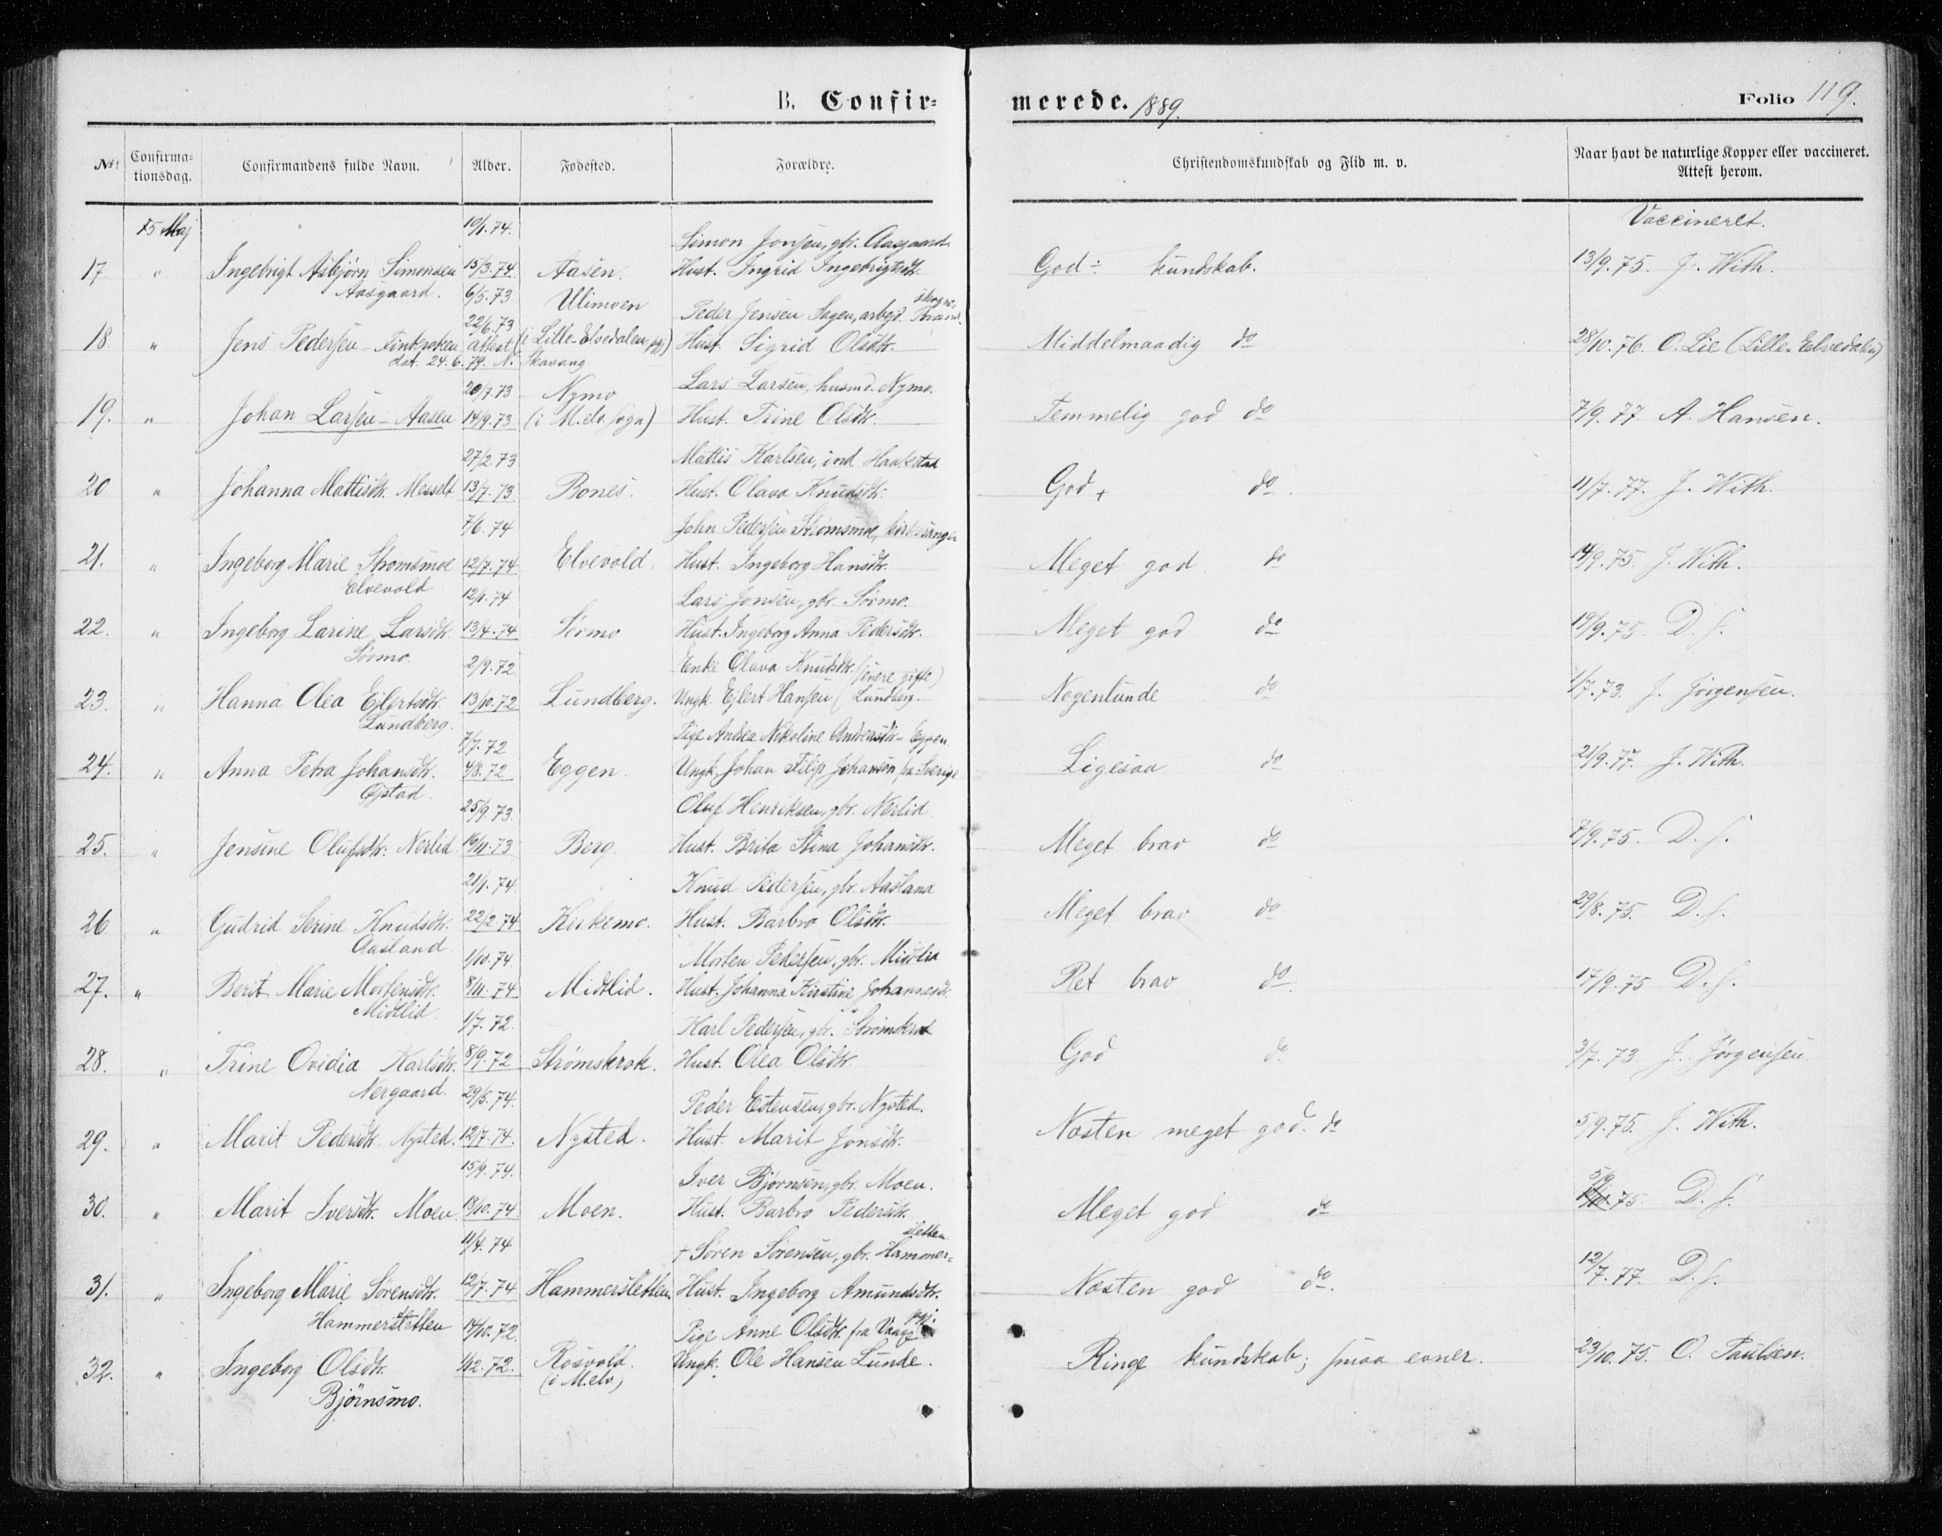 B. Confir=
merede. 1889.
Folio 119.
No. Confirma=tionsdag. Confirmandens fulde Navn. Alder. Fødested. Forældre. Christendomskundskab og Flid m. v. Naar havt de naturlige Kopper eller vaccineret. Attest herom.
15 Maj 19/1.74. Simon Jonsen, gbr. Aasgaard. Vaccineret.
17 " Ingebrigt Asbjørn Simonsen 15/3.74 Aasen. Hust. Ingrid Ingebrigtsdtr. God ÷ kundskab. 13/9.75. J. With.
Aasgaard. 6/5.73 Ulimoen Peder Jensen Sagen, arbejd.
18. " Jens Pedersen - Finkroken 22/6.73 attest (i Lille-Elvedalen, pgj) Hust. Sigrid Olsdtr. Middelmaadig do 28/10.76. O. Lie (Lille-Elvedalen)
dat. 24.6.79. N. Skavang
20/7.73 Nymo Lars Larsen, husmd. Nymo.
19. " Johan Larsen - Aasen 14/9.73 (i M.elv. sogn) Hust. Trine Olsdtr. Temmelig god do 7/9.77 A. Hansen.
27/2.73 Mattis Karlsen, ind Haakstad
20 " Johanna Mattisdtr. Messelt 13/7.73 Bones. Hust. Olava Knudsdtr. God + do. 11/7.77. J. With.
7/6.74 John Pedersen Strømsmoe, kirkesanger
21. " Ingeborg Marie Strømsmoe 12/7.74 Elvevold. Hust. Ingeborg Hansdtr. Meget god do 14/9.75. J. With.
Elvevold 12/1.74 Lars Jonsen, gbr. Sørmo.
22. " Ingeborg Larine Larsdtr. 13/4.74 Sørmo Hust. Ingeborg Anna Pedersdtr. Meget god do 19/9.75. D. s.
Sørmo. 2/9.72 Enke Olava Knudsdtr. (senere gifte)
23. " Hanna Olea Eilertsdtr. 13/10.72 Lundberg. Ungk. Ejlert Hansen (Lundberg. Nogenlunde do 1/7.73. J. Jørgensen.
Lundberg. 7/7.72 Pige Andrea Nikoline Andersdtr - Eggen
24. " Anna Petra Johansdtr. 4/8.72 Eggen. Ungk. Johan Filip Johanson fra Sverige Ligesaa do 21/9.77. J. With.
Opstad. 25/9.73. Oluf Henriksen, gbr. Nerlid.
25. " Jensine Olufsdtr. Nerlid. 16/11.73 Berg. Hust. Brita Stina Johansdtr. Meget brav do 7/9.75. D. s.
21/1.74. Knud Pedersen, gbr. Aasland
26 " Gudrid Serine Knudsdtr. 22/2.74 Kirkemo. Hust. Barbro Olsdtr. Meget brav do 29/8.75. D. s.
Aasland. 1/10.74 Morten Pedersen, gbr. Midtlid
27. " Berit Marie Mortensdtr. 8/11.74 Midtlid. Hust. Johanna Kirstine Johannesdtr. Ret brav do. 17/9.75 D. s.
Midtlid. 1/7.72. Karl Pedersen, gbr. Strømskrok
28. " Trine Ovidia Karlsdtr. 8/9.72 Strømskrok. Hust. Olea Olsdtr. God do 3/7.73 J. Jørgensen
Nergaard. 29/5.74. Peder Estensen, gbr. Nysted.
29. " Marit Pedersdtr. Nysted. 12/7.74. Nysted. Hust. Marit Jonsdtr. Næsten meget god. do 5/9.75. J. With.
15/9.74. Iver Bjørnsen, gbr. Moen.
30. " Marit Iversdtr. Moen. 18/10.74 Moen. Hust. Barbro Pedersdtr. Meget god do 75. D. s.
11/4.74 + Søren Sørensen, gbr. Hammer=sletten
31. " Ingeborg Marie Sørensdtr. 12/7.74 Hammersletten. Hust. Ingeborg Amundsdtr. Næsten god do. 12/7.77. D. s.
Hammersletten 14/10.72. Pige Anne Olsdtr. fra Vaage pgj.
32. " Ingeborg Olsdtr. 1/12.72. Rosvold. Ungk. Ole Hansen Lunde. Ringe kundskab; smaa evner. 23/10.75. O. Paulsen.
Bjørnsmo. (i M.elv)